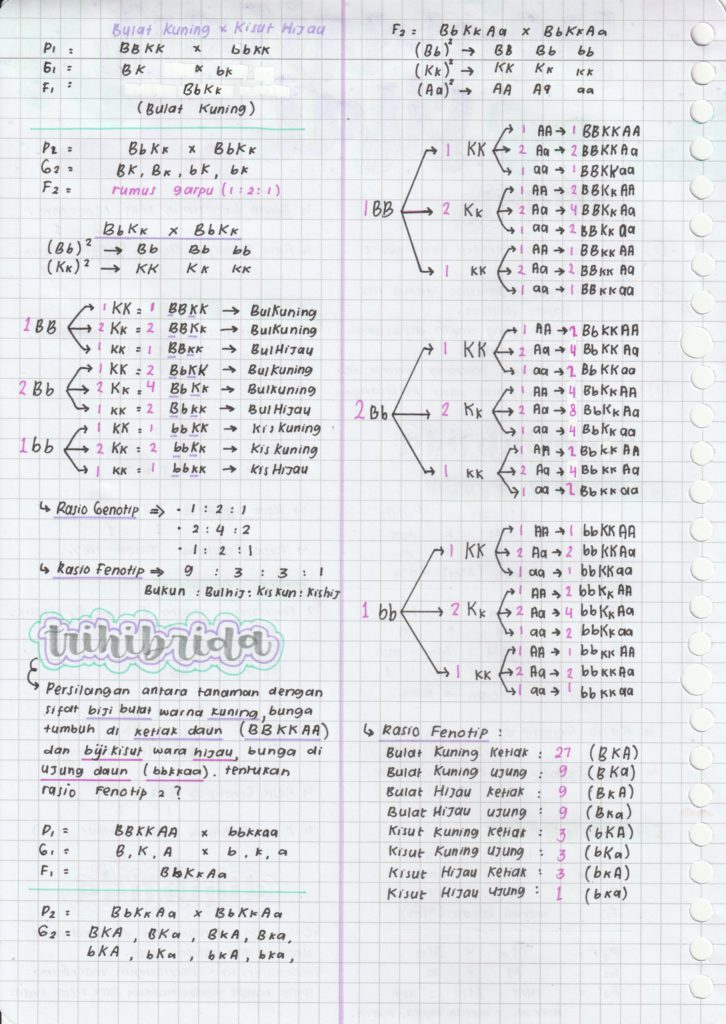 Bulat Kuning x Kisut Hijau
P1 = BBKK x bbkk
G1 = BK x bk
F1 = BbKk
(Bulat Kuning)
P2 = BbKk x BbKk
G2 = BK, Bk, bK, bk
F2 = rumus garpu (1:2:1)
BbKk x BbKk
(Bb)² → Bb Bb bb
(Kk)² → KK Kk kk
1BB
1 KK = 1 BBKK → BulKuning
2 Kk = 2 BBKk → BulKuning
1 kk = 1 BBkk → BulHijau
2Bb
1 KK = 2 BbKK → BulKuning
2 Kk = 4 BbKk → Bulkuning
1 kk = 2 Bbkk → BulHijau
1bb
1 KK = 1 bbKK → KisKuning
2 Kk = 2 bbKk → KisKuning
1 kk = 1 bbkk → KisHijau
↳ Rasio Genotip ⇒ • 1 : 2 : 1
• 2 : 4 : 2
• 1 : 2 : 1
↳ Rasio Fenotip ⇒ 9 : 3 : 3 : 1
Bukun : Bulhij : Kiskun : Kishij
trihibrida
↳ Persilangan antara tanaman dengan
sifat biji bulat warna kuning, bunga
tumbuh di ketiak daun (BBKKAA)
dan biji kisut wara hijau, bunga di
ujung daun (bbkkaa). tentukan
rasio Fenotip 2 ?
P1 = BBKKAA x bbkkaa
G1 = B, K, A x b, k, a
F1 = BbKkAa
P2 = BbKkAa x BbKkAa
G2 = BKA, BKa, BkA, Bka,
bKA, bKa, bkA, bka,
F2 = BbKkAa x BbKkAa
(Bb)² → BB Bb bb
(Kk)² → KK Kk kk
(Aa)² → AA Aa aa
1BB
1 KK
1 AA → 1 BBKKAA
2 Aa → 2 BBKKAa
1 aa → 1 BBKKaa
2 Kk
1 AA → 2 BBKkAA
2 Aa → 4 BBKkAa
1 aa → 2 BBKkaa
1 kk
1 AA → 1 BBkkAA
2 Aa → 2 BBkkAa
1 aa → 1 BBkkaa
2Bb
1 KK
1 AA → 2 BbKKAA
2 Aa → 4 BbKKAa
1 aa → 2 BbKKaa
2 Kk
1 AA → 4 BbKkAA
2 Aa → 8 BbKkAa
1 aa → 4 BbKkaa
1 kk
1 AA → 2 BbkkAA
2 Aa → 4 BbkkAa
1 aa → 2 Bbkkaa
1 bb
1 KK
1 AA → 1 bbKKAA
2 Aa → 2 bbKKAa
1 aa → 1 bbKKaa
2 Kk
1 AA → 2 bbKkAA
2 Aa → 4 bbKkAa
1 aa → 2 bbKkaa
1 kk
1 AA → 1 bbkkAA
2 Aa → 2 bbkkAa
1 aa → 1 bbkkaa
↳ Rasio Fenotip :
Bulat Kuning Ketiak : 27 (BKA)
Bulat Kuning ujung : 9 (BKa)
Bulat Hijau ketiak : 9 (BkA)
Bulat Hijau ujung : 9 (Bka)
Kisut Kuning ketiak : 3 (bKA)
Kisut Kuning ujung : 3 (bKa)
Kisut Hijau Ketiak : 3 (bkA)
Kisut Hijau ujung : 1 (bka)